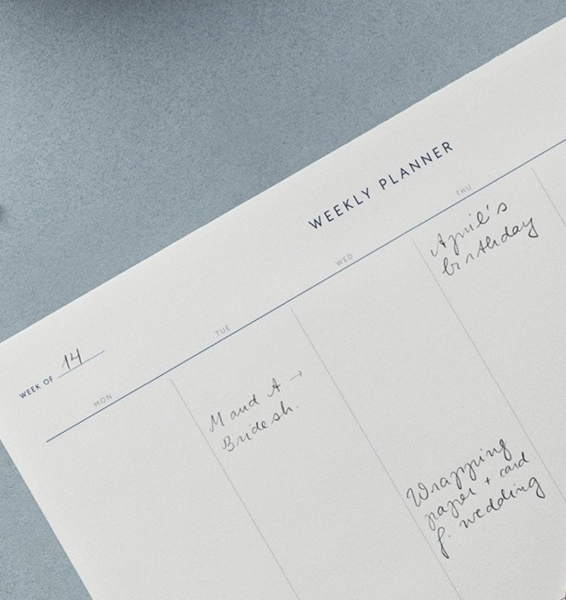 WEEKLY PLANNER
WEEK OF 14
MON
TUE
WED
THU
M and A →
Bridesh.
April's
birthday
Wrapping
paper + card
f. wedding